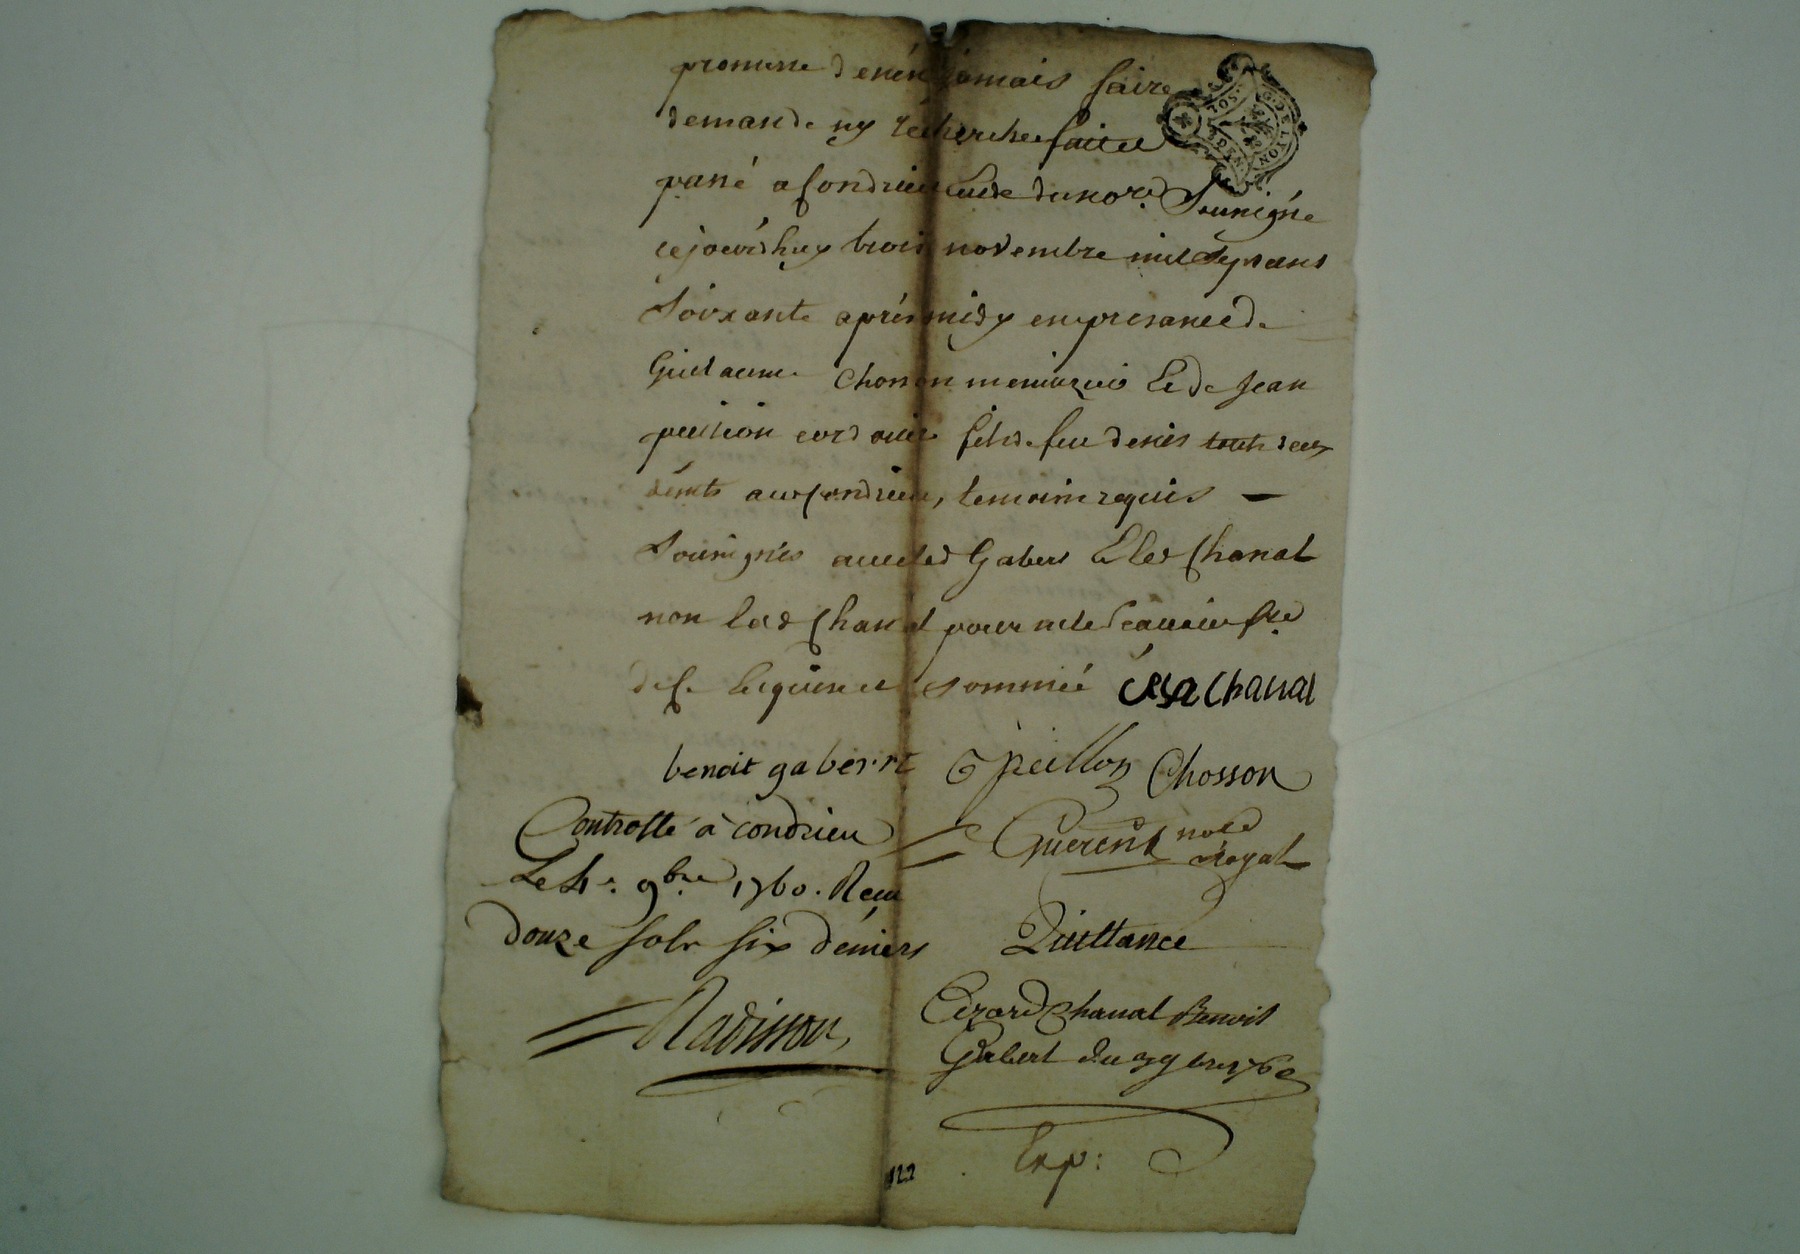 promesse de n'en jamais faire
demande ny recherche fait et
passé a Condrieu etude du nore. Soussigné
cejourdhuy trois novembre mil sept cens
Soixante après midy en presance de
Guilaume Chosson menuizuié Et de Jean
peition cordonier fils de feu denis touts deux
démts aud Condrieu, temoins requis —
Soussignés avec led Gabert Et led Chanal
non lad Chanal pour ne le scavoir
de ce Enquise et sommée Chanal
benoit gabert peillon Chosson
Controllé à Condrieu Guerin nore
royal
Le 4e. 9bre 1760. Reçu
douze sols six deniers Quittance
Radisson Cezard Chanal Benoit
Gabert du 3 9bre 1760
Exp:
122